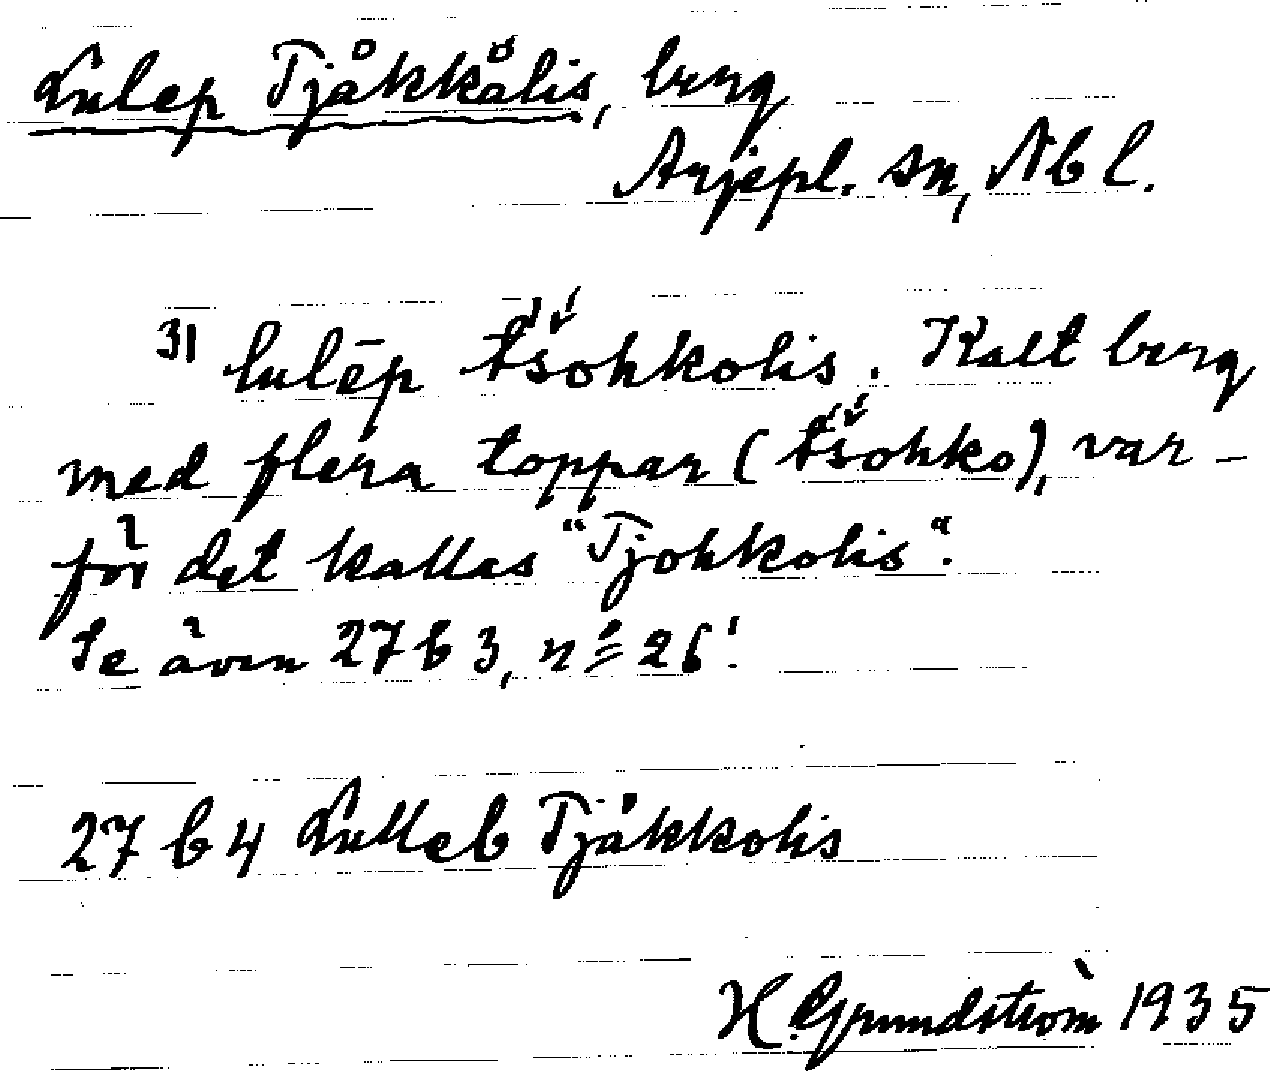 Lulep Tjåkkålis, berg
Arjepl. sn, Nb l.
31 lulēp tšohkolis. Kalt berg
med flera toppar (tšohko), var-
för det kallas "Tjohkolis".
Se även 27 b 3, n:o 26!
27 b 4 Lulleb Tjåkkolis
H. Grundström 1935